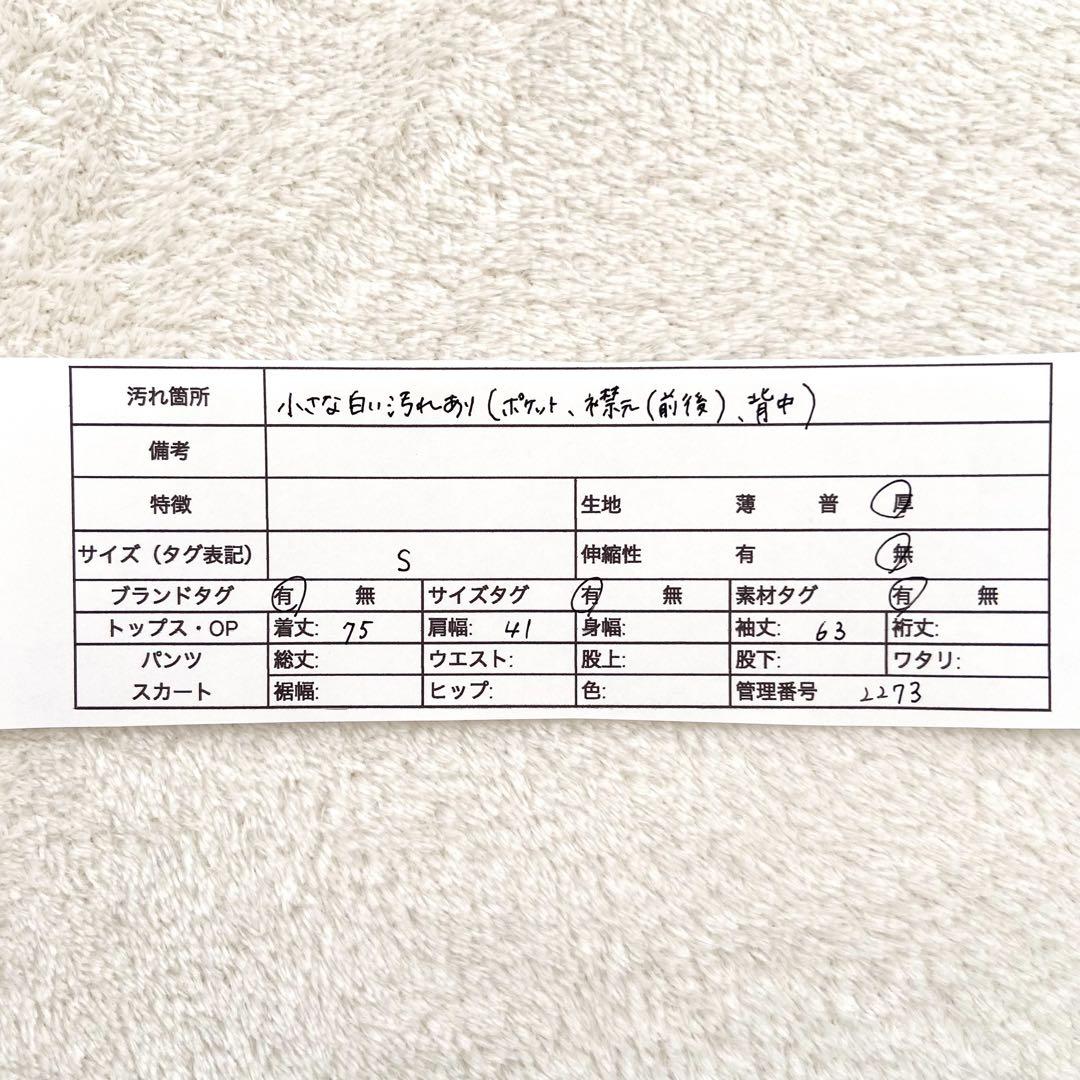 汚れ箇所 小さな白い汚れあり(ポケット、襟元(前後)、背中)
備考
特徴 生地 薄 普 厚
サイズ(タグ表記) S 伸縮性 有 無
ブランドタグ 有 無 サイズタグ 有 無 素材タグ 有 無
トップス・OP 着丈: 75 肩幅: 41 身幅: 袖丈: 63 裄丈:
パンツ 総丈: ウエスト: 股上: 股下: ワタリ:
スカート 裾幅: ヒップ: 色: 管理番号 2273